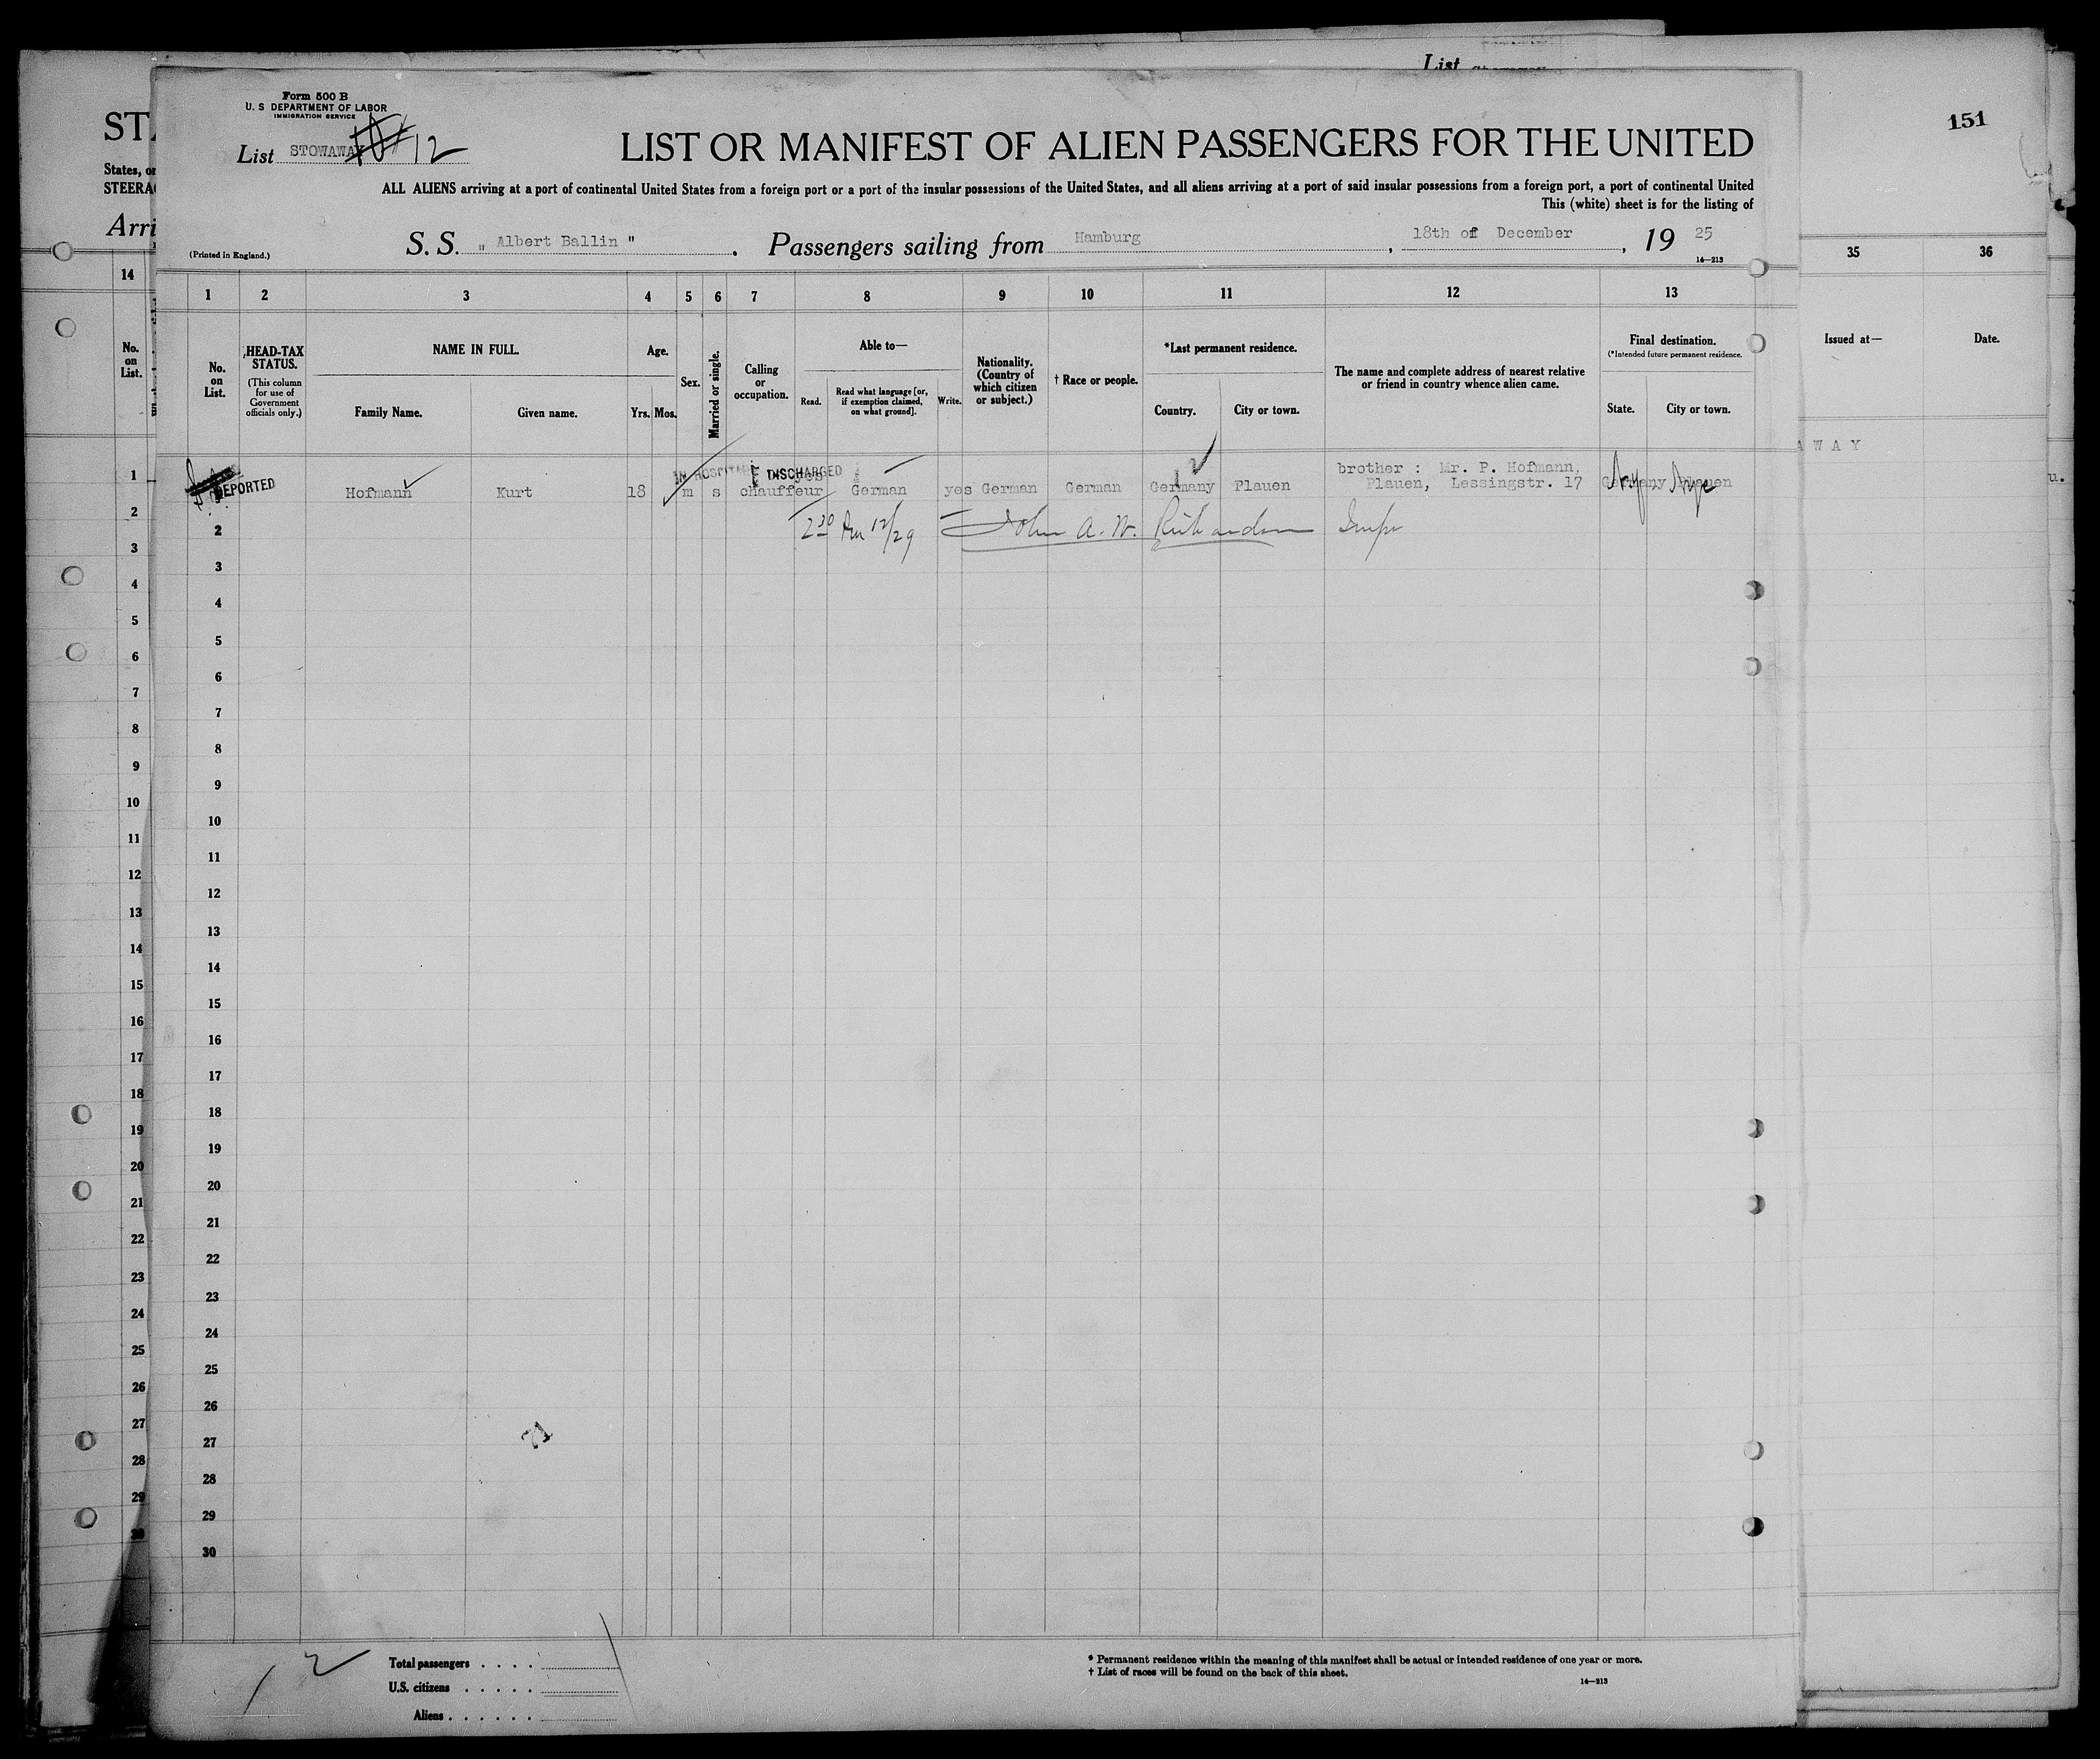 List
151
Form 500 B
U. S DEPARTMENT OF LABOR
IMMIGRATION SERVICE
List STOWAWAY 12
LIST OR MANIFEST OF ALIEN PASSENGERS FOR THE UNITED
ALL ALIENS arriving at a port of continental United States from a foreign port or a port of the insular possessions of the United States, and all aliens arriving at a port of said insular possessions from a foreign port, a port of continental United
This (white) sheet is for the listing of
(Printed in England.)
S. S. " Albert Ballin " . Passengers sailing from Hamburg , 18th of December , 19 25
14—213
STA
States, or
STEERA
Arri
14
No. on List.
35 36
Issued at— Date.
A W A Y
u.
1 2 3 4 5 6 7 8 9 10 11 12 13
No. on List.
HEAD-TAX STATUS.
(This column for use of Government officials only.)
NAME IN FULL.
Family Name. Given name.
Age.
Yrs. Mos.
Sex.
Married or single.
Calling or occupation.
Able to—
Read. Read what language [or, if exemption claimed, on what ground]. Write.
Nationality. (Country of which citizen or subject.)
† Race or people.
*Last permanent residence.
Country. City or town.
The name and complete address of nearest relative or friend in country whence alien came.
Final destination.
(*Intended future permanent residence.
State. City or town.
IN HOSPITAL DISCHARGED
brother : Mr. P. Hofmann,
DEPORTED Hofmann Kurt 18 m s chauffeur yes German yes German German Germany Plauen Plauen, Lessingstr. 17 Germany Plauen
2 2 30 12/29 John A. W. Richardson Insp
3
4
5
6
7
8
9
10
11
12
13
14
15
16
17
18
19
20
21
22
23
24
25
26
27
28
29
30
1
2
3
4
5
6
7
8
9
10
11
12
13
14
15
16
17
18
19
20
21
22
23
24
25
26
27
28
29
30
Total passengers . . . .
U.S. citizens . . . . .
Aliens . . . . . .
* Permanent residence within the meaning of this manifest shall be actual or intended residence of one year or more.
† List of races will be found on the back of this sheet.
14—213